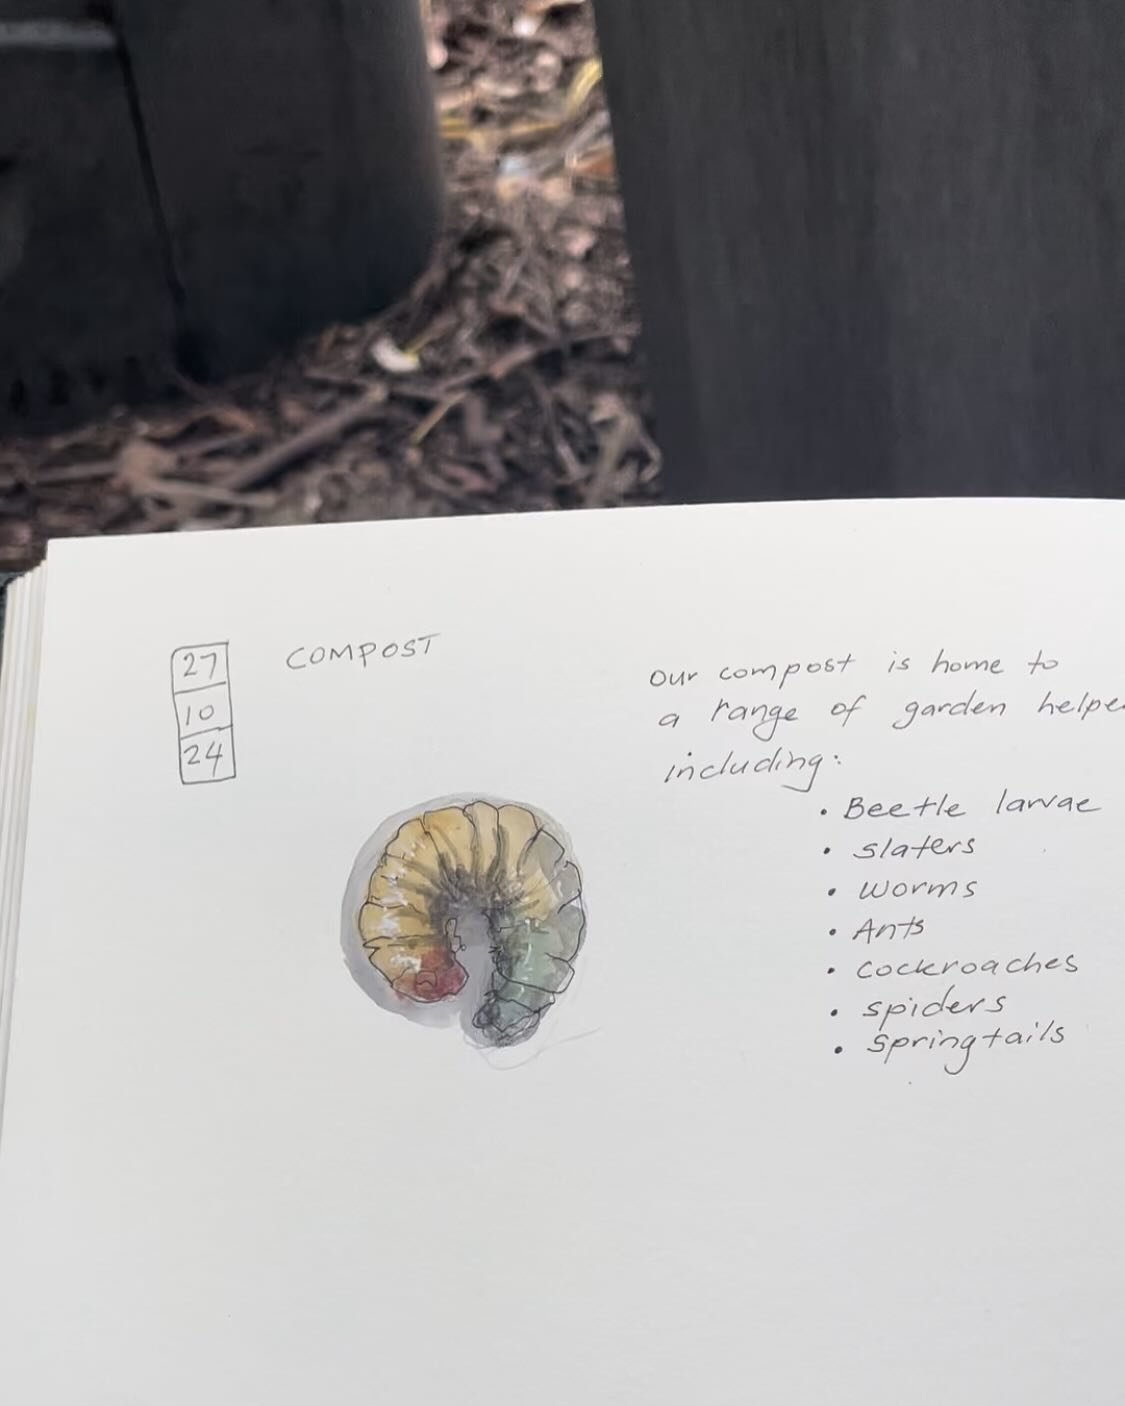 27
10
24
COMPOST
Our compost is home to
a range of garden helpe
including:
• Beetle larvae
• slaters
• worms
• Ants
• cockroaches
• spiders
• springtails